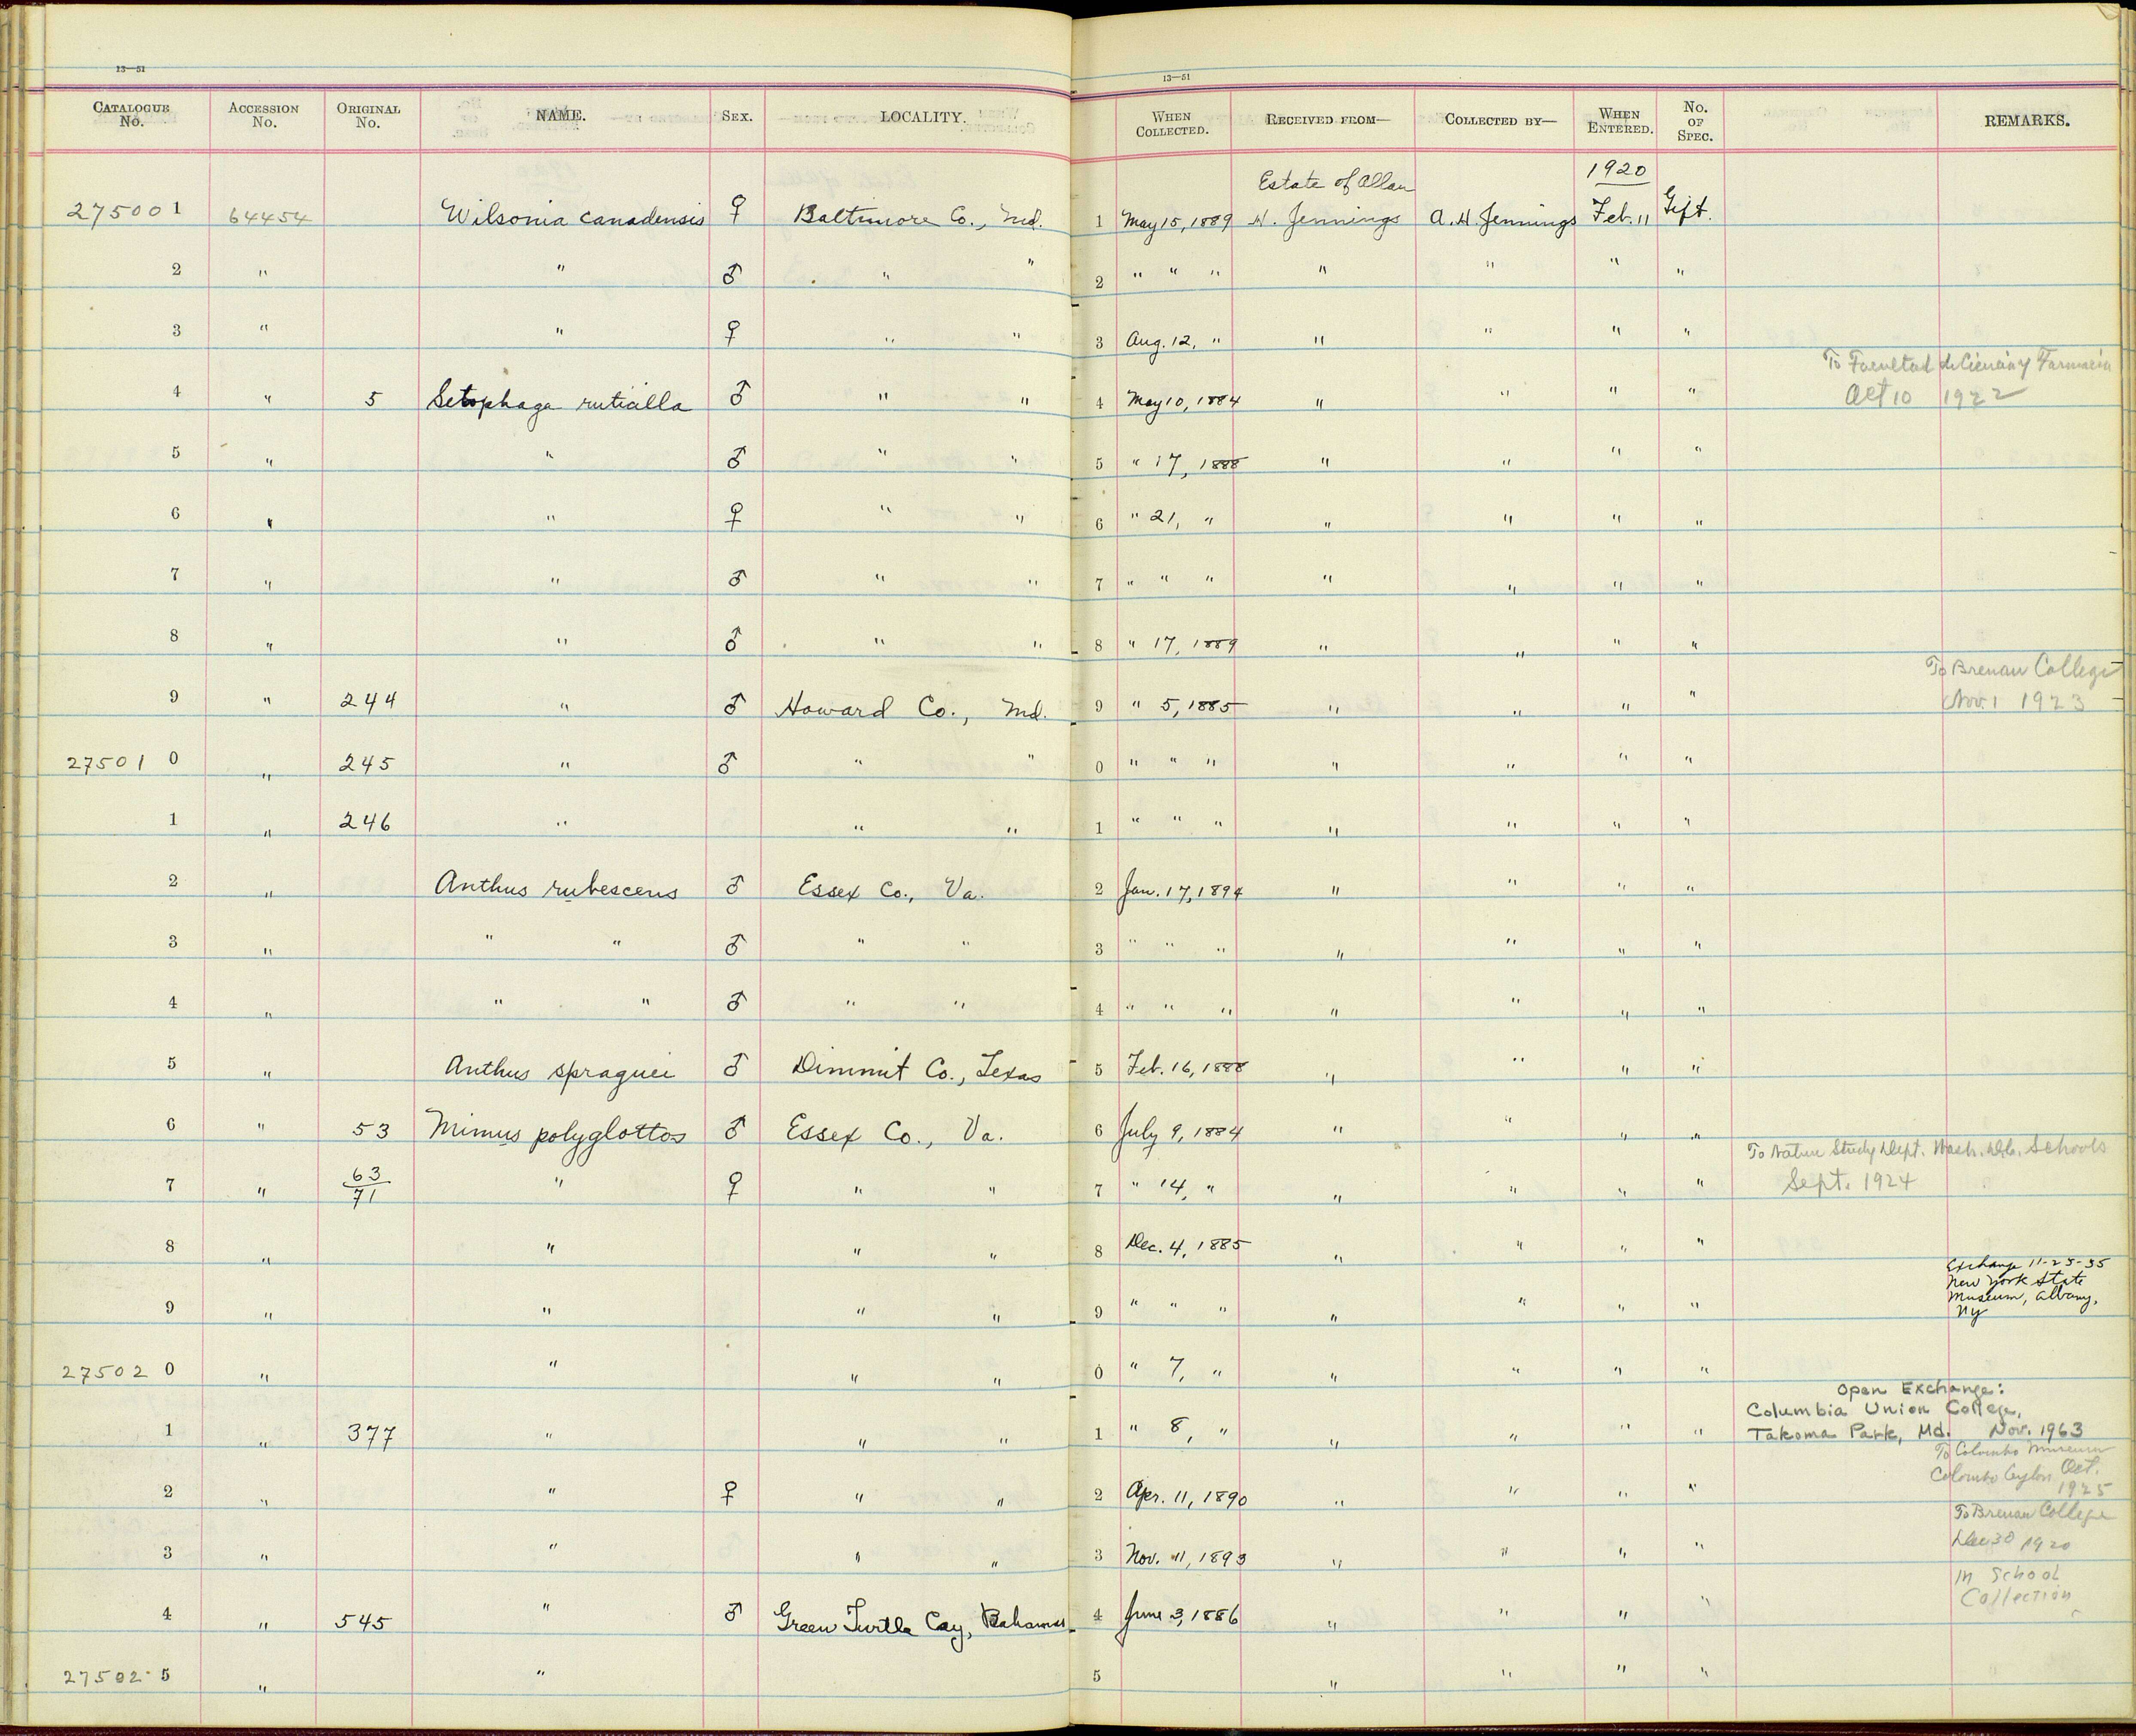 13—51
13—51
CATALOGUE No. ACCESSION No. ORIGINAL No. NAME. SEX. LOCALITY. WHEN COLLECTED. RECEIVED FROM— COLLECTED BY— WHEN ENTERED. No. OF SPEC. REMARKS.
Estate of Allan 1920
275001 64454 Wilsonia canadensis ♀ Baltimore Co., Md. 1 May 15, 1889 H. Jennings A. H. Jennings Feb. 11 Gift.
2 " " ♂ " " 2 " " " " " " "
3 " " ♀ " " 3 Aug. 12, " " " " "
To Facultad de Ciencia y Farmacia
4 " 5 Setophaga ruticilla ♂ " " 4 May 10, 1884 " " " " Oct 10 1922
5 " " ♂ " " 5 " 17, 1888 " " " "
6 " " ♀ " " 6 " 21, " " " " "
7 " " ♂ " " 7 " " " " " " "
8 " " ♂ " " 8 " 17, 1889 " " " "
To Brenau College
9 " 244 " ♂ Howard Co., Md. 9 " 5, 1885 " " " " Nov. 1 1923
275010 " 245 " ♂ " " 0 " " " " " " "
1 " 246 " " " 1 " " " " " " "
2 " Anthus rubescens ♂ Essex Co., Va. 2 Jan. 17, 1894 " " " "
3 " " " ♂ " " 3 " " " " " " "
4 " " " ♂ " " 4 " " " " " " "
5 " Anthus spraguei ♂ Dimmit Co., Texas 5 Feb. 16, 1888 " " " "
6 " 53 Mimus polyglottos ♂ Essex Co., Va. 6 July 9, 1884 " " " "
To Nature Study Dept. Wash. D.C. Schools
7 " 63/71 " ♀ " " 7 " 14, " " " " " Sept. 1924
8 " " " " 8 Dec. 4, 1885 " " " "
Exchange 11-25-35
New York State
Museum, Albany,
NY
9 " " " " 9 " " " " " " "
275020 " " " " 0 " 7, " " " " "
Open Exchange:
Columbia Union College,
Takoma Park, Md. Nov. 1963
1 " 377 " " " 1 " 8, " " " " "
To Colombo Museum
Colombo Ceylon Oct.
1925
2 " " ♀ " " 2 Apr. 11, 1890 " " " "
To Brenau College
Dec 30 1920
3 " " " " 3 Nov. 11, 1893 " " " "
In School
Collection
4 " 545 " ♂ Green Turtle Cay, Bahamas 4 June 3, 1886 " " " "
275025 " " 5 " " " "